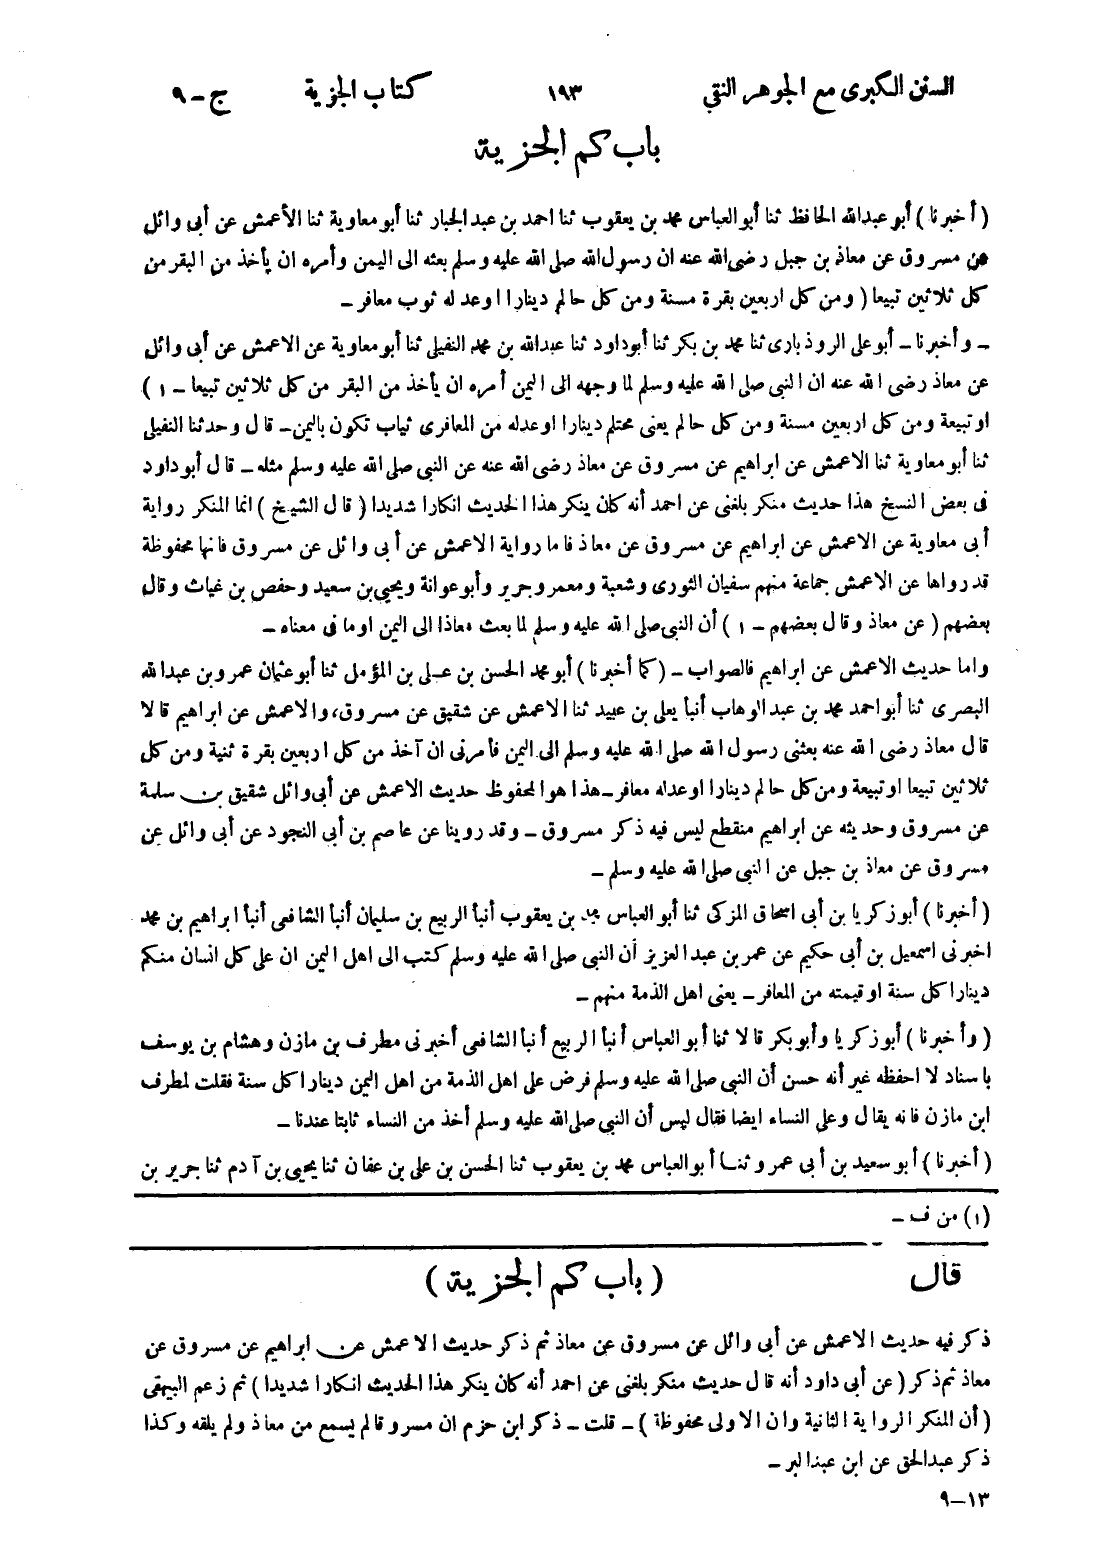 السنن الكبرى مع الجوهر النقي ١٩٣ كتاب الجزية ج-٩
باب كم الجزية
(أخبرنا) أبو عبدالله الحافظ ثنا أبو العباس محمد بن يعقوب ثنا احمد بن عبد الجبار ثنا أبو معاوية ثنا الأعمش عن أبى وائل
عن مسروق عن معاذ بن جبل رضى الله عنه ان رسول الله صلى الله عليه وسلم بعثه الى اليمن وأمره ان يأخذ من البقر من
كل ثلاثين تبيعا (ومن كل اربعين بقرة مسنة ومن كل حالم دينارا اوعدله ثوب معافر -
- وأخبرنا - أبو على الروذبارى ثنا محمد بن بكر ثنا أبوداود ثنا عبدالله بن محمد النفيلى ثنا أبو معاوية عن الاعمش عن أبى وائل
عن معاذ رضى الله عنه ان النبى صلى الله عليه وسلم لما وجهه الى اليمن أمره ان يأخذ من البقر من كل ثلاثين تبيعا - ١)
اوتبيعة ومن كل اربعين مسنة ومن كل حالم يعنى محتلم دينارا اوعدله من المعافرى ثياب تكون باليمن - قال وحدثنا النفيلى
ثنا أبو معاوية ثنا الاعمش عن ابراهيم عن مسروق عن معاذ رضى الله عنه عن النبى صلى الله عليه وسلم مثله - قال أبوداود
فى بعض النسخ هذا حديث منكر بلغنى عن احمد أنه كان ينكر هذا الحديث انكارا شديدا (قال الشيخ) انما المنكر رواية
أبى معاوية عن الاعمش عن ابراهيم عن مسروق عن معاذ فاما رواية الاعمش عن أبى وائل عن مسروق فانها محفوظة
قد رواها عن الاعمش جماعة منهم سفيان الثورى وشعبة ومعمر وجرير وأبوعوانة ويحيى بن سعيد وحفص بن غياث وقال
بعضهم (عن معاذ وقال بعضهم - ١) أن النبى صلى الله عليه وسلم لما بعث معاذا الى اليمن اوما فى معناه -
واما حديث الاعمش عن ابراهيم فالصواب - (كما أخبرنا) أبو محمد الحسن بن على بن المؤمل ثنا أبو عثمان عمرو بن عبدالله
البصرى ثنا أبو احمد محمد بن عبد الوهاب أنبأ يعلى بن عبيد ثنا الاعمش عن شقيق عن مسروق، والاعمش عن ابراهيم قالا
قال معاذ رضى الله عنه بعثنى رسول الله صلى الله عليه وسلم الى اليمن فأمرنى ان آخذ من كل اربعين بقرة ثنية ومن كل
ثلاثين تبيعا اوتبيعة ومن كل حالم دينارا اوعدله معافر - هذا هو المحفوظ حديث الاعمش عن أبى وائل شقيق بن سلمة
عن مسروق وحديثه عن ابراهيم منقطع ليس فيه ذكر مسروق - وقد روينا عن عاصم بن أبى النجود عن أبى وائل عن
مسروق عن معاذ بن جبل عن النبى صلى الله عليه وسلم -
(أخبرنا) أبو زكريا بن أبى اسحاق المزكى ثنا أبو العباس محمد بن يعقوب أنبأ الربيع بن سليمان أنبأ الشافعى أنبأ ابراهيم بن محمد
اخبرنى اسمعيل بن أبى حكيم عن عمر بن عبد العزيز أن النبى صلى الله عليه وسلم كتب الى اهل اليمن ان على كل انسان منكم
دينارا كل سنة او قيمته من المعافر - يعنى اهل الذمة منهم -
(وأخبرنا) أبو زكريا وأبو بكر قالا ثنا أبو العباس أنبأ الربيع أنبأ الشافعى أخبرنى مطرف بن مازن وهشام بن يوسف
باسناد لا احفظه غير أنه حسن أن النبى صلى الله عليه وسلم فرض على اهل الذمة من اهل اليمن دينارا كل سنة فقلت لمطرف
ابن مازن فانه يقال وعلى النساء ايضا فقال ليس أن النبى صلى الله عليه وسلم أخذ من النساء ثابتا عندنا -
(أخبرنا) أبو سعيد بن أبى عمرو ثنا أبو العباس محمد بن يعقوب ثنا الحسن بن على بن عفان ثنا يحيى بن آدم ثنا جرير بن
(١) من ف -
قال (باب كم الجزية)
ذكر فيه حديث الاعمش عن أبى وائل عن مسروق عن معاذ ثم ذكر حديث الاعمش عن ابراهيم عن مسروق عن
معاذ ثم ذكر (عن أبى داود أنه قال حديث منكر بلغنى عن احمد أنه كان ينكر هذا الحديث انكارا شديدا) ثم زعم البيهقى
(أن المنكر الرواية الثانية وان الاولى محفوظة) - قلت - ذكر ابن حزم ان مسروقا لم يسمع من معاذ ولم يلقه وكذا
ذكر عبدالحق عن ابن عبدالبر -
١٣-٩